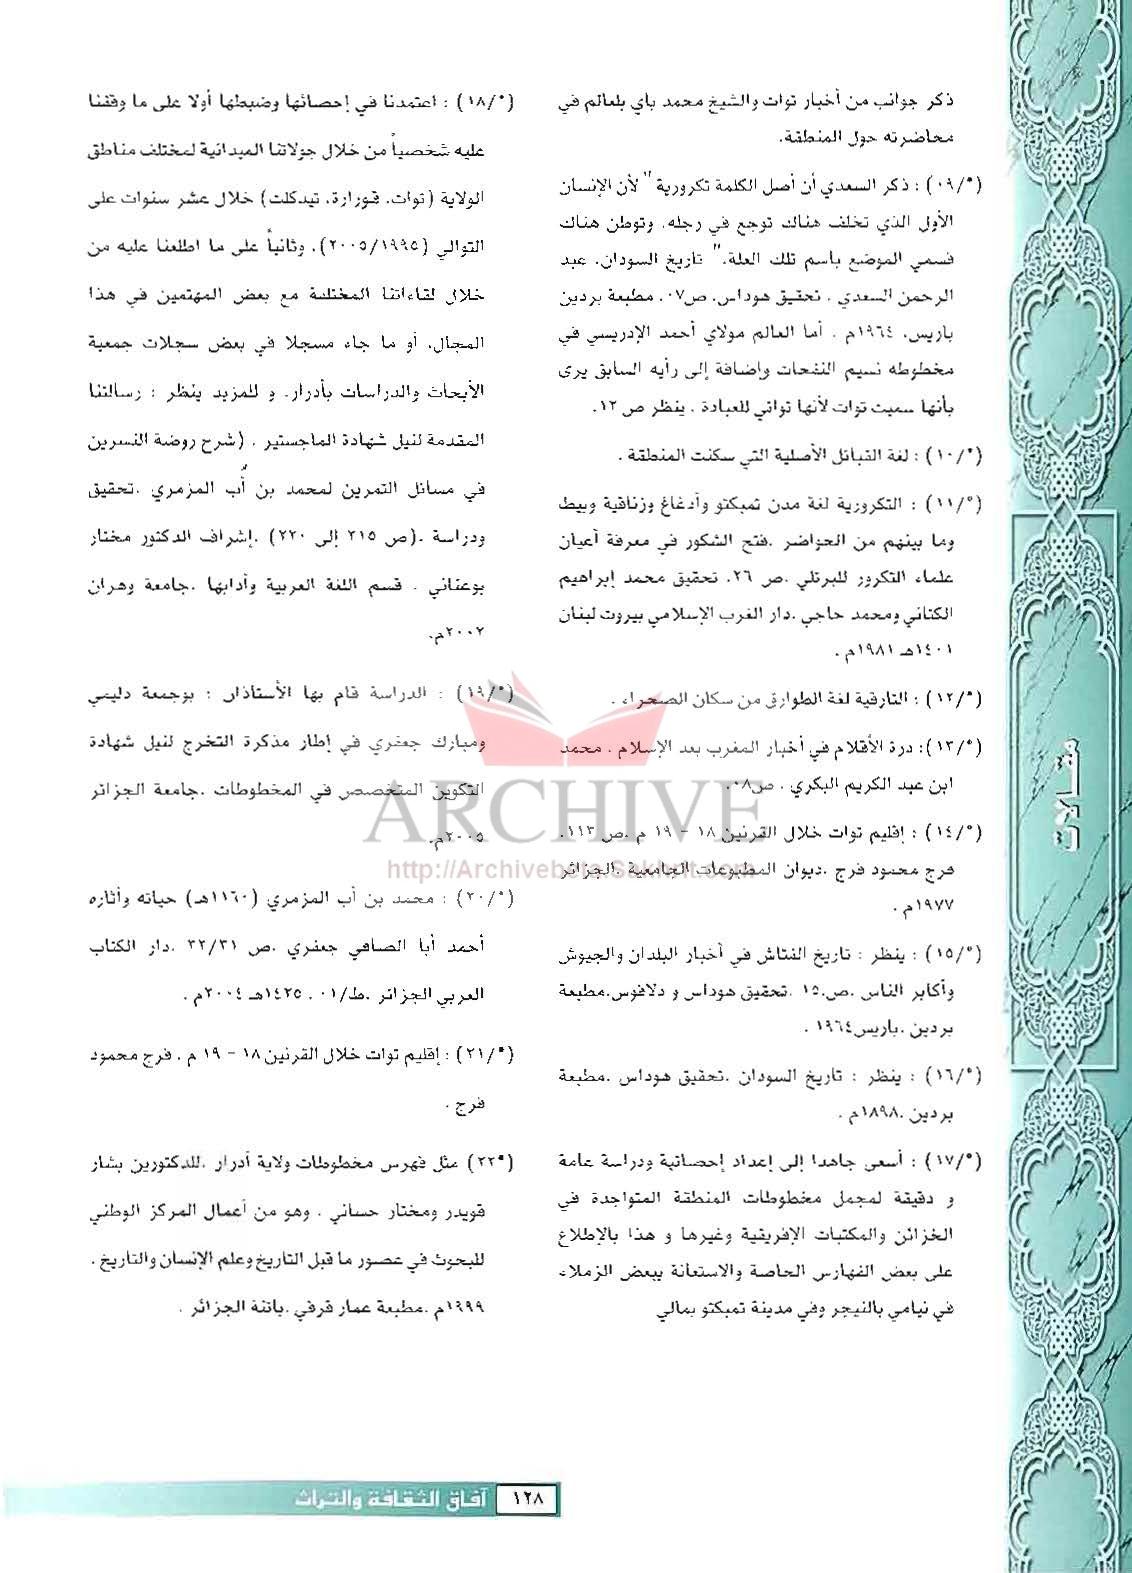 ذكر جوانب من أخبار توات والشيخ محمد باي بلعالم في
محاضرته حول المنطقة.
(*/٠٩) : ذكر السعدي أن أصل الكلمة تكرورية " لأن الإنسان
الأول الذي تخلف هناك توجع في رجله، وتوطن هناك
فسمي الموضع باسم تلك العلة." تاريخ السودان، عبد
الرحمن السعدي . تحقيق هوداس، ص٠٧، مطبعة بردين
باريس، ١٩٦٤م . أما العالم مولاي أحمد الإدريسي في
مخطوطه نسيم النفحات وإضافة إلى رأيه السابق يرى
بأنها سميت توات لأنها تواتي للعبادة . ينظر ص ١٢.
(*/١٠) : لغة القبائل الأصلية التي سكنت المنطقة .
(*/١١) : التكرورية لغة مدن تمبكتو وأدغاغ وزناقية وبيط
وما بينهم من الحواضر .فتح الشكور في معرفة أعيان
علماء التكرور للبرتلي .ص ٢٦، تحقيق محمد إبراهيم
الكتاني ومحمد حاجي .دار الغرب الإسلامي بيروت لبنان
١٤٠١هـ ١٩٨١م .
(*/١٢) : التارقية لغة الطوارق من سكان الصحراء .
(*/١٣): درة الأقلام في أخبار المغرب بعد الإسلام . محمد
ابن عبد الكريم البكري . ص٠٨.
(*/١٤) : إقليم توات خلال القرنين ١٨ - ١٩ م .ص ١١٣.
فرج محمود فرج .ديوان المطبوعات الجامعية .الجزائر
١٩٧٧م .
(*/١٥) : ينظر : تاريخ الفتاش في أخبار البلدان والجيوش
وأكابر الناس .ص.١٥ .تحقيق هوداس و دلافوس.مطبعة
بردين .باريس١٩٦٤ .
(*/١٦) : ينظر : تاريخ السودان .تحقيق هوداس .مطبعة
بردين .١٨٩٨م .
(*/١٧) : أسعى جاهدا إلى إعداد إحصائية ودراسة عامة
و دقيقة لمجمل مخطوطات المنطقة المتواجدة في
الخزائن والمكتبات الإفريقية وغيرها و هذا بالإطلاع
على بعض الفهارس الخاصة والاستعانة ببعض الزملاء
في نيامي بالنيجر وفي مدينة تمبكتو بمالي
(*/١٨) : اعتمدنا في إحصائها وضبطها أولا على ما وقفنا
عليه شخصياً من خلال جولاتنا الميدانية لمختلف مناطق
الولاية (توات، قورارة، تيدكلت) خلال عشر سنوات على
التوالي (٢٠٠٥/١٩٩٥)، وثانياً على ما اطلعنا عليه من
خلال لقاءاتنا المختلفة مع بعض المهتمين في هذا
المجال، أو ما جاء مسجلا في بعض سجلات جمعية
الأبحاث والدراسات بأدرار، و للمزيد ينظر : رسالتنا
المقدمة لنيل شهادة الماجستير . (شرح روضة النسرين
في مسائل التمرين لمحمد بن أُب المزمري .تحقيق
ودراسة .(ص ٢١٥ إلى ٢٢٠) .إشراف الدكتور مختار
بوعناني . قسم اللغة العربية وآدابها .جامعة وهران
٢٠٠٢م.
(*/١٩) : الدراسة قام بها الأستاذان : بوجمعة دليمي
ومبارك جعفري في إطار مذكرة التخرج لنيل شهادة
التكوين المتخصص في المخطوطات .جامعة الجزائر
٢٠٠٥م.
(*/٢٠) : محمد بن أب المزمري (١١٦٠هـ) حياته وآثاره
أحمد أبا الصافي جعفري .ص ٣٢/٣١ .دار الكتاب
العربي الجزائر .ط/٠١ . ١٤٢٥هـ ٢٠٠٤م .
(*/٢١) : إقليم توات خلال القرنين ١٨ - ١٩ م . فرج محمود
فرج .
(*٢٢) مثل فهرس مخطوطات ولاية أدرار .للدكتورين بشار
قويدر ومختار حساني . وهو من أعمال المركز الوطني
للبحوث في عصور ما قبل التاريخ وعلم الإنسان والتاريخ .
١٩٩٩م .مطبعة عمار قرفي .باتنة الجزائر .
ARCHIVE
http://Archivebeta.Sakhrit.com
مقالات
١٢٨ آفاق الثقافة والتراث